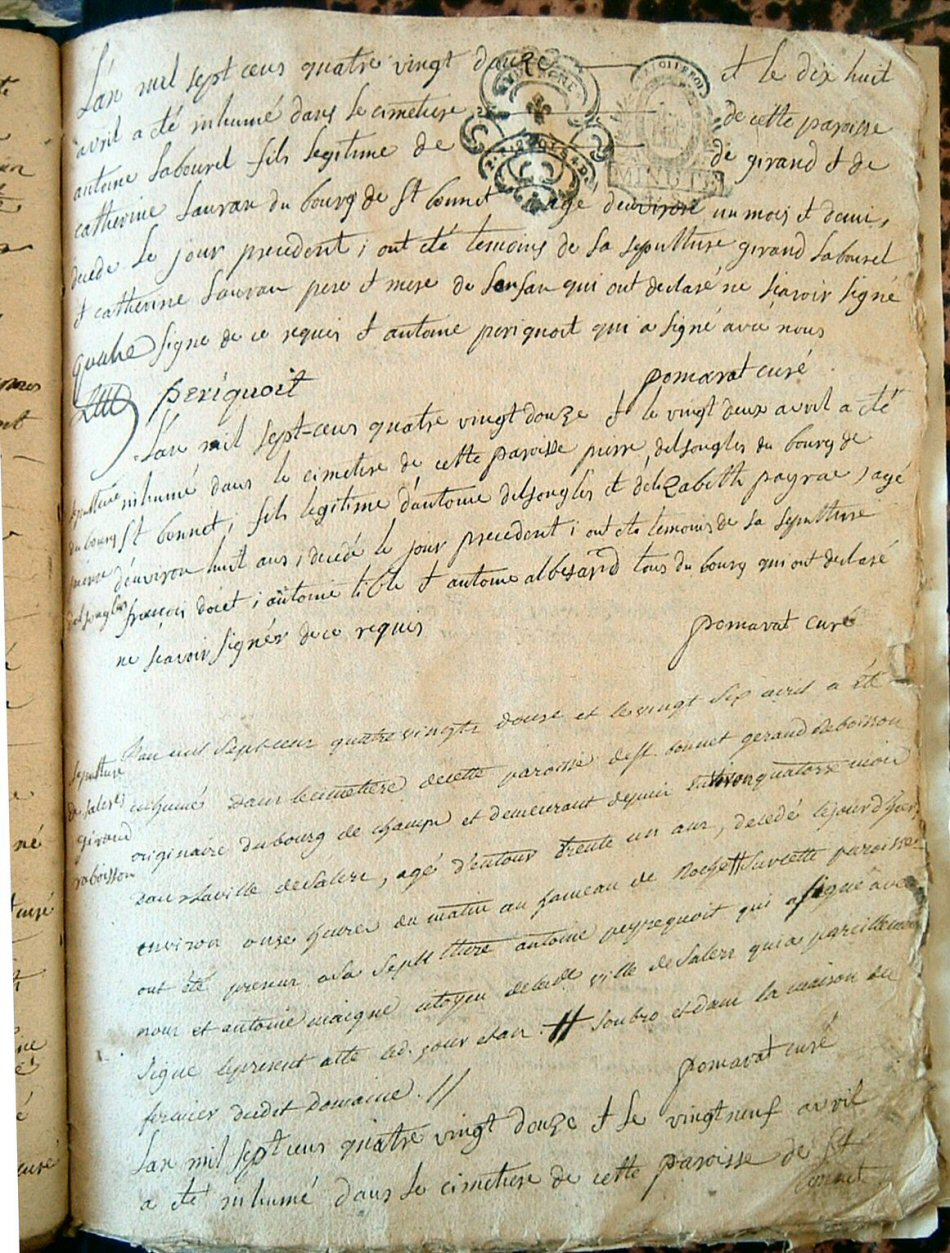 L'an mil sept cens quatre vingt douze et le dix huit
avril a été inhumé dans le cimetiere de cette paroisse
antoine Labourel fils legitime de de girand et de
catherine Lauran du bourg de St bonnet agé denviron un mois et demi,
decede le jour precedent ; ont été temoins de sa sepulture girand Labourel
et catherine Lauran pere et mere de Lenfan qui ont declaré ne sçavoir signé
signe de ce requis et antoine periquoit qui a signé avec nous
MINUTE
periquoit pomarat curé
L'an mil sept-cens quatre vingt douze et le vingt deux avril a été
inhumé dans le cimetire de cette paroisse pierre delsongles du bourg de
St bonnet ; fils legitime d'antoine delsongles et délizabetth payrac ; agé
d'environ huit ans ; decedé le jour precedent ; ont eté temoins de sa sepulture
françois doiet ; antoine et antoine albesard tous du bourg qui ont declaré
ne sçavoir signér de ce requis
sepulture
du bourg
pierre
delsongles
pomarat curé
L'an mil sept cens quatre vingts douze et le vingt six avril a été
inhumé dans le cimetiere de cette paroisse de st. bonnet gerand deboisson
originaire du bourg de champs et demeurant depuis environ quatorze mois
dans la ville de Salers, agé d'entour trente un ans, decedé le jour d'hier,
environ onze heures du matin au hameau de // sur cette paroisse
ont été presens a la Sepulture antoine peyrequoit qui a signé avec
nous et antoine maigne citoyen de lad. ville de Salers qui a pareillement
Signé le present acte led. jour et an . // Soubro et dans la maison du
fermier dudit domaine . //
sepulture
de salers
giraud
raboisson
pomarat curé
L'an mil sept cens quatre vingt douze et le vingt neuf avril
a été inhumé dans le cimetiere de cette paroisse de St
bonnet